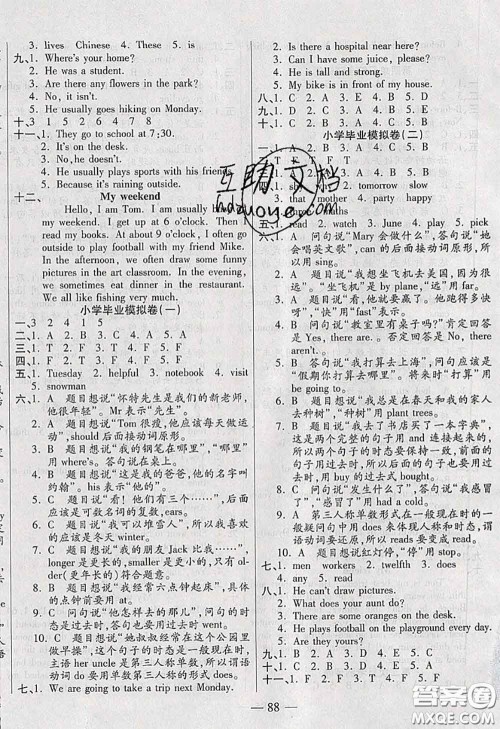 3. lives Chinese 4. These 5. is
九、1. Where's your home?
2. He was a student.
3. Are there any flowers in the park?
4. No, it isn't.
5. He usually goes hiking on Monday.
十、3 1 5 2 6 4 7 8
十一、1. They go to school at 7:30.
2. No, he doesn't.
3. He usually plays sports with his friend.
4. He is cooking.
5. Because it's raining outside.
十二、 My weekend
Hello, I am Tom. I always
my weekend. I get up at 6 o'clock. I often
read my books. At about 9 o'clock, I often go
outside to play football with my friend Mike.
In the afternoon, we often draw some funny
pictures in the art classroom. In the evening,
we sometimes eat dinner in the restaurant.
We all like fishing very much.
小学毕业模拟卷(一)
一、3 2 4 1 5
二、1. C 2. A 3. C 4. A 5. A
三、1. T 2. F 3. T 4. F 5. T
四、1. F 2. T 3. F 4. T 5. F
五、1. Tuesday 2. helpful 3. notebook 4. visit
5. snowman
六、1. C 题目想说“怀特先生是我们的新老师,
他很年轻”。Mr 表示“先生”。
2. B 题目想说“Tom 很瘦,他应该每天做运
动”,should 后面接动词原形。
3. B 题目想说“我的钢笔在哪里”,“哪里”
用 where's。答句说在桌上。
4. B 题目想说“这是我的爸爸,他的名字叫
约翰”。his“他的”。
5. C 题目想说“看!他们有三个……”,
后面应该接名词的复数,ears。
6. C 题目想说“我可以堆雪人”,所以我喜欢
的应该是冬天 winter。
7. C 题目想说“我的朋友 Jack 比我……”,
longer 是更长的,smaller 是更小的,old-
er(更年长的)符合题意。
8. B 题目想说“我经常六点钟起床”,具体
的点钟前要用 at。
9. C 问句说“他怎样去的那儿”,问句的时
态是过去时,答句也应是过去时 went。
10. C 题目想说“她叔叔经常在这个公园里
做早操”,这个句子的时态是现在时,
主语 her uncle 是第三人称单数,所以谓语
动词 do 要用单数第三人称的形式 does。
七、1. We are going to take a trip next Monday.
2. Is there a hospital near here?
3. Can I have some juice, please?
4. There is football on the desk.
5. My bike is in front of my house.
八、1. C 2. A 3. E 4. B 5. D
九、1. B 2. D 3. A 4. E 5. C
小学毕业模拟卷(二)
4. tomorrow slow
3. that mother 4. party happy
五、1. read 2. watch 3. June 4. play 5. pick
六、1. A 问句说“Mary 会做什么”,答句说“她
会唱英文歌”,can 的后面接动词原形,所
以用 sing。
2. A 题目想说“我想坐飞机去美国,因为我
“坐飞机”是 by plane。
3. A 题目想说“他是赢家,他能跑得多快
呀”,“快”用“fast”表示。
4. B 问句说“教室里有桌子吗?”肯定回答
是 Yes, there are.。否定回答是 No, there
5. B 答句说“我打算去上海”,问句应该是
“假期你打算去哪里”。将来时“打算”用
be going to。
6. B 题目想说“我总是在春天和我的家人
去种树”,“种树”用 plant trees。
7. B 题目想说“我去了书店买了一本书”,
这是两个完整的句子用 and 连接,所以前
后两个句子的时态要保持一致,前面的句
子时态是过去时,所以后面的句子时态也
是过去时,买用 buy 的过去式 bought。
8. C 问句说“发生了什么”。答句说“我感
冒了”用 had a cold。
9. C 第三人称单数形式在一般现在时的一
般疑问句中用 does 来体现人称和时态,谓
语动词要还原,所以 reads 要变成 read。
10. A 题目想说红灯停,“停”用 stop。
七、1. men workers 2. twelfth 3. does
4. any 5. read
八、1. He can't draw pictures.
2. What does your aunt do?
3. There are some oranges on the desk.
4. He plays football on the playground every day.
5. They are afraid of us.
九、1. B 2. C 3. A 4. E 5. D
十、1. C 2. D 3. B 4. A 5. E
— 88 —
互助文档
hdzuoye.com
答案圈
MXQE.COM